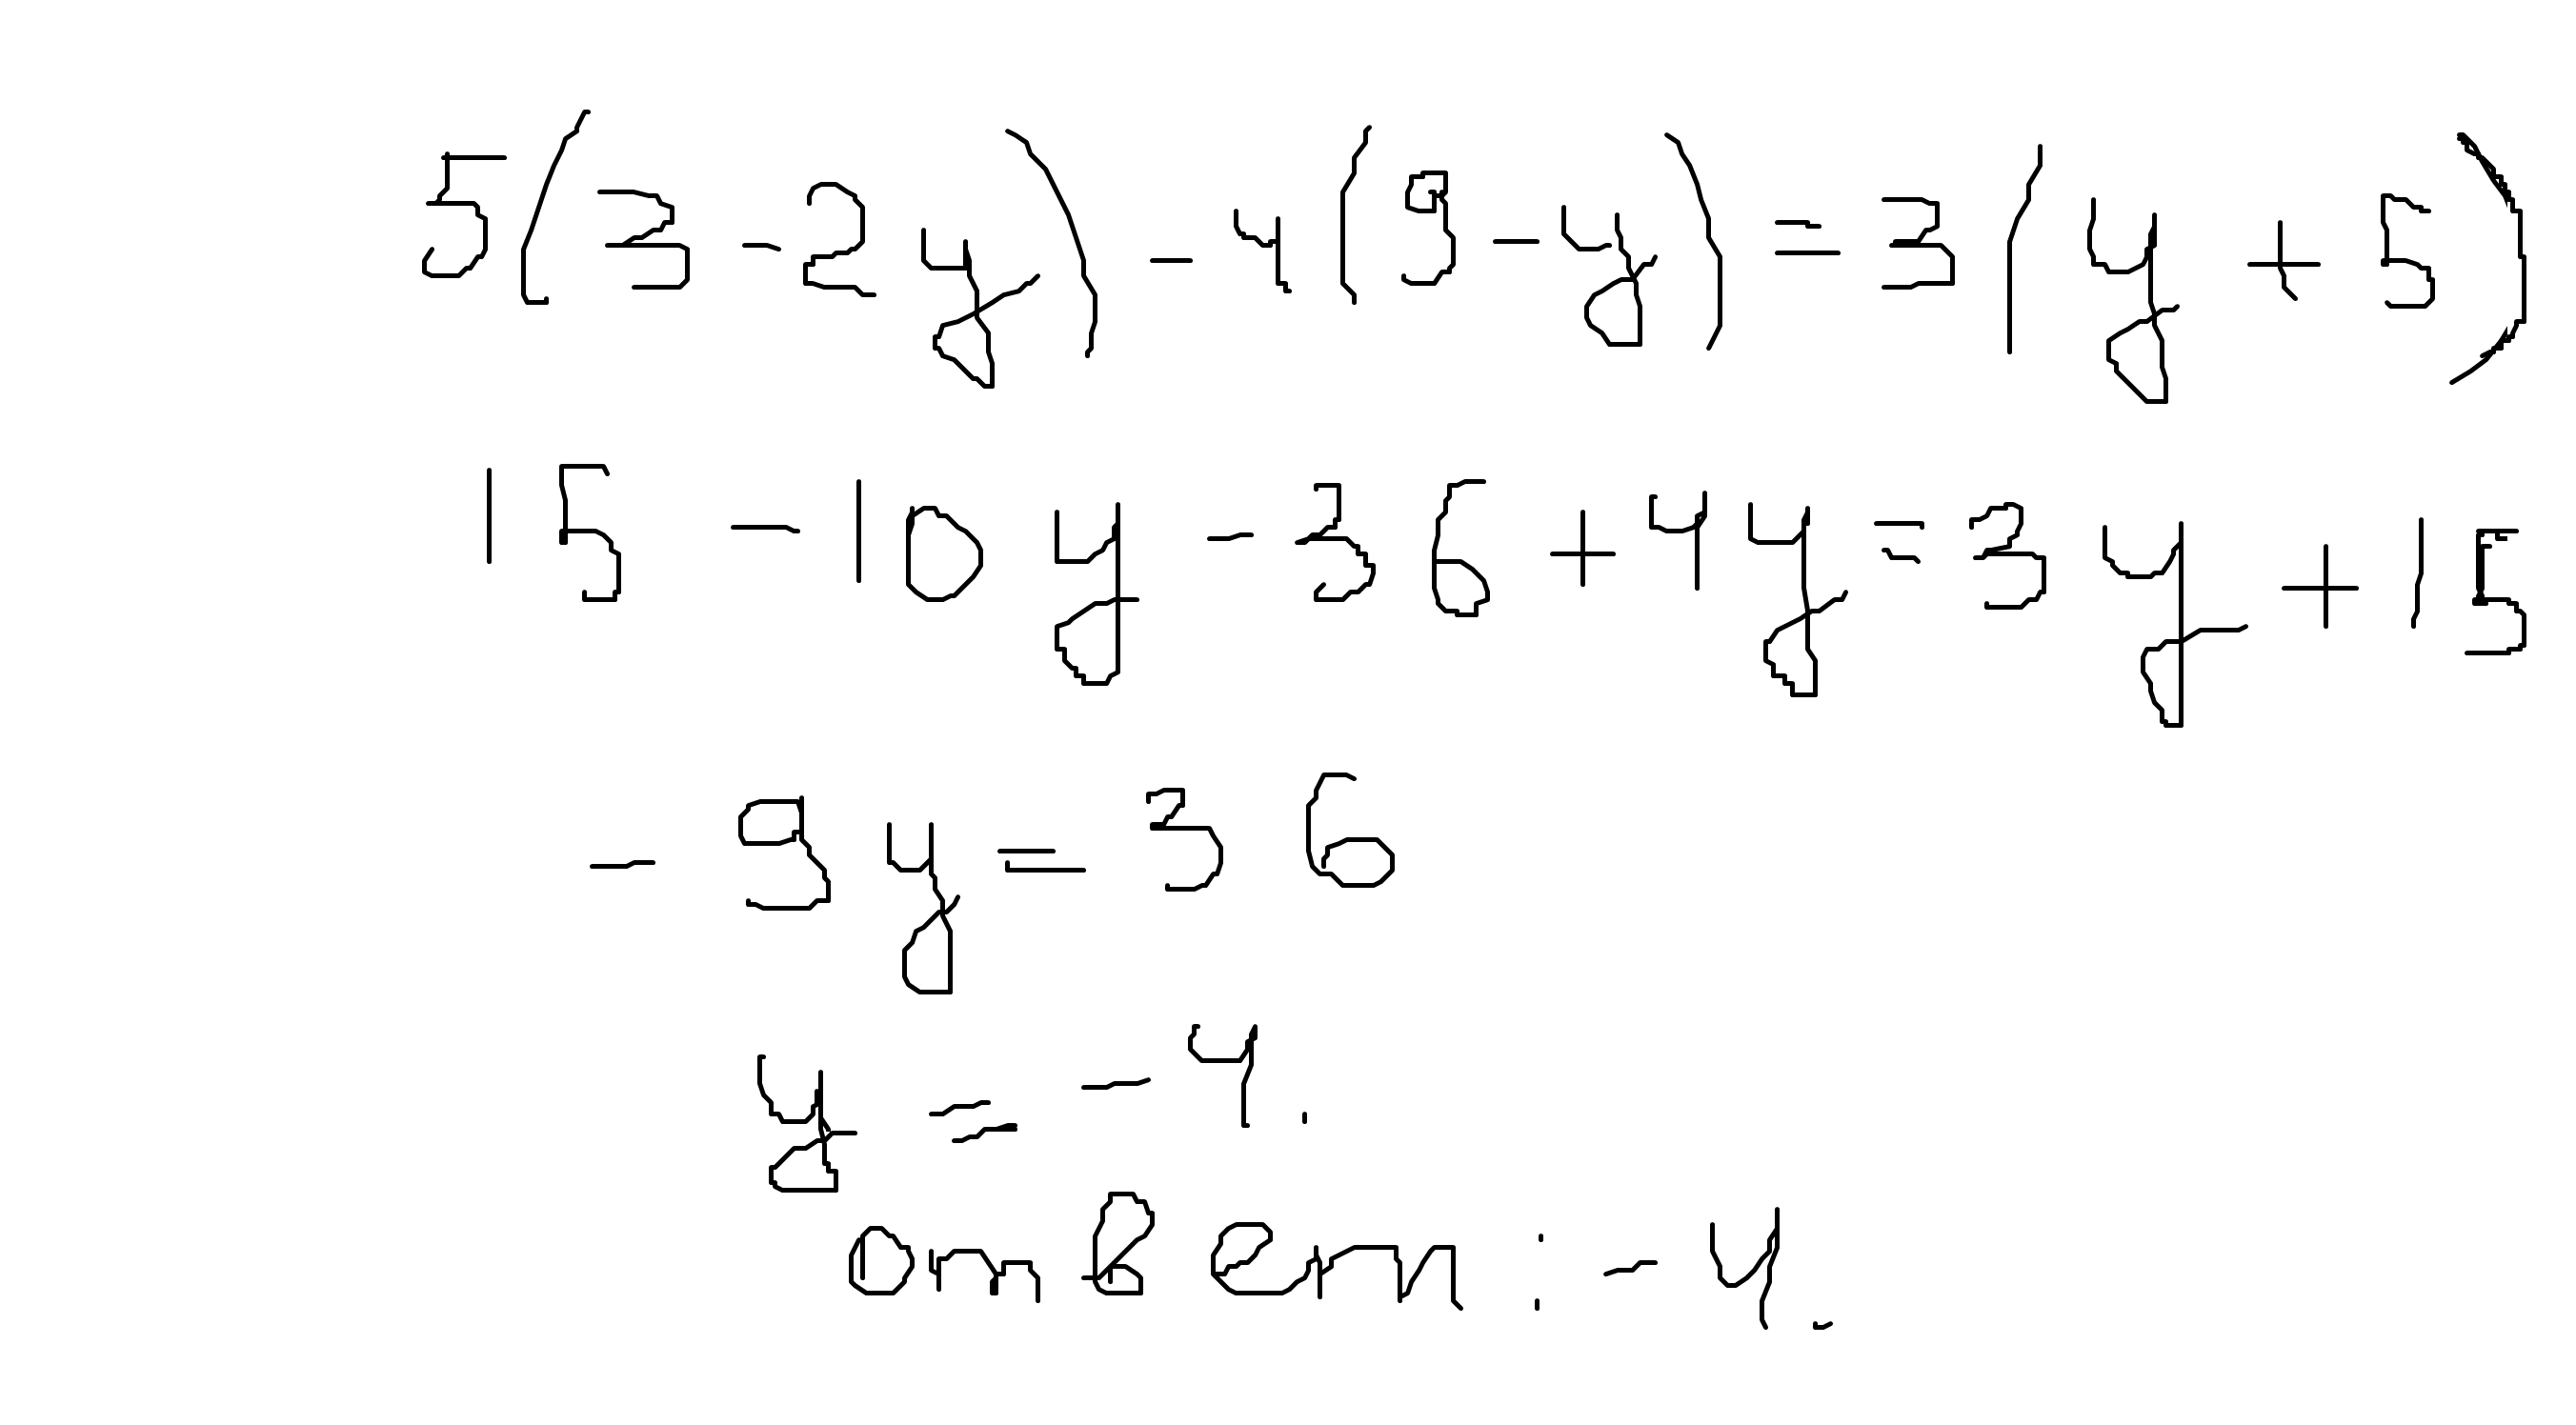 5(3-2y)-4(9-y)=3(y+5)
15-10y-36+4y=3y+15
-9y=36
y=-4.
ответ: -4.